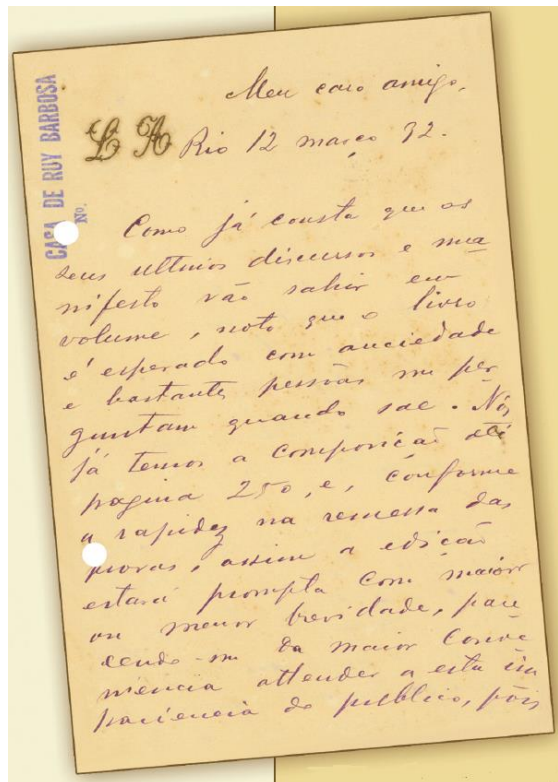 CASA DE RUY BARBOSA
Nº.
L A
Meu caro amigo,
Rio 12 março 92.
Como já consta que os
seus ultimos discursos e ma
nifesto vão sahir em
volume, noto que o livro
é esperado com anciedade
e bastantes pessôas me per
guntam quando sae. Nós
já temos a composição até
pagina 250, e, conforme
a rapidez na remessa das
provas, assim a edição
estará prompta com maior
ou menor brevidade, pare
cendo-me da maior conve
niencia attender a esta im
paciencia do publico, pois